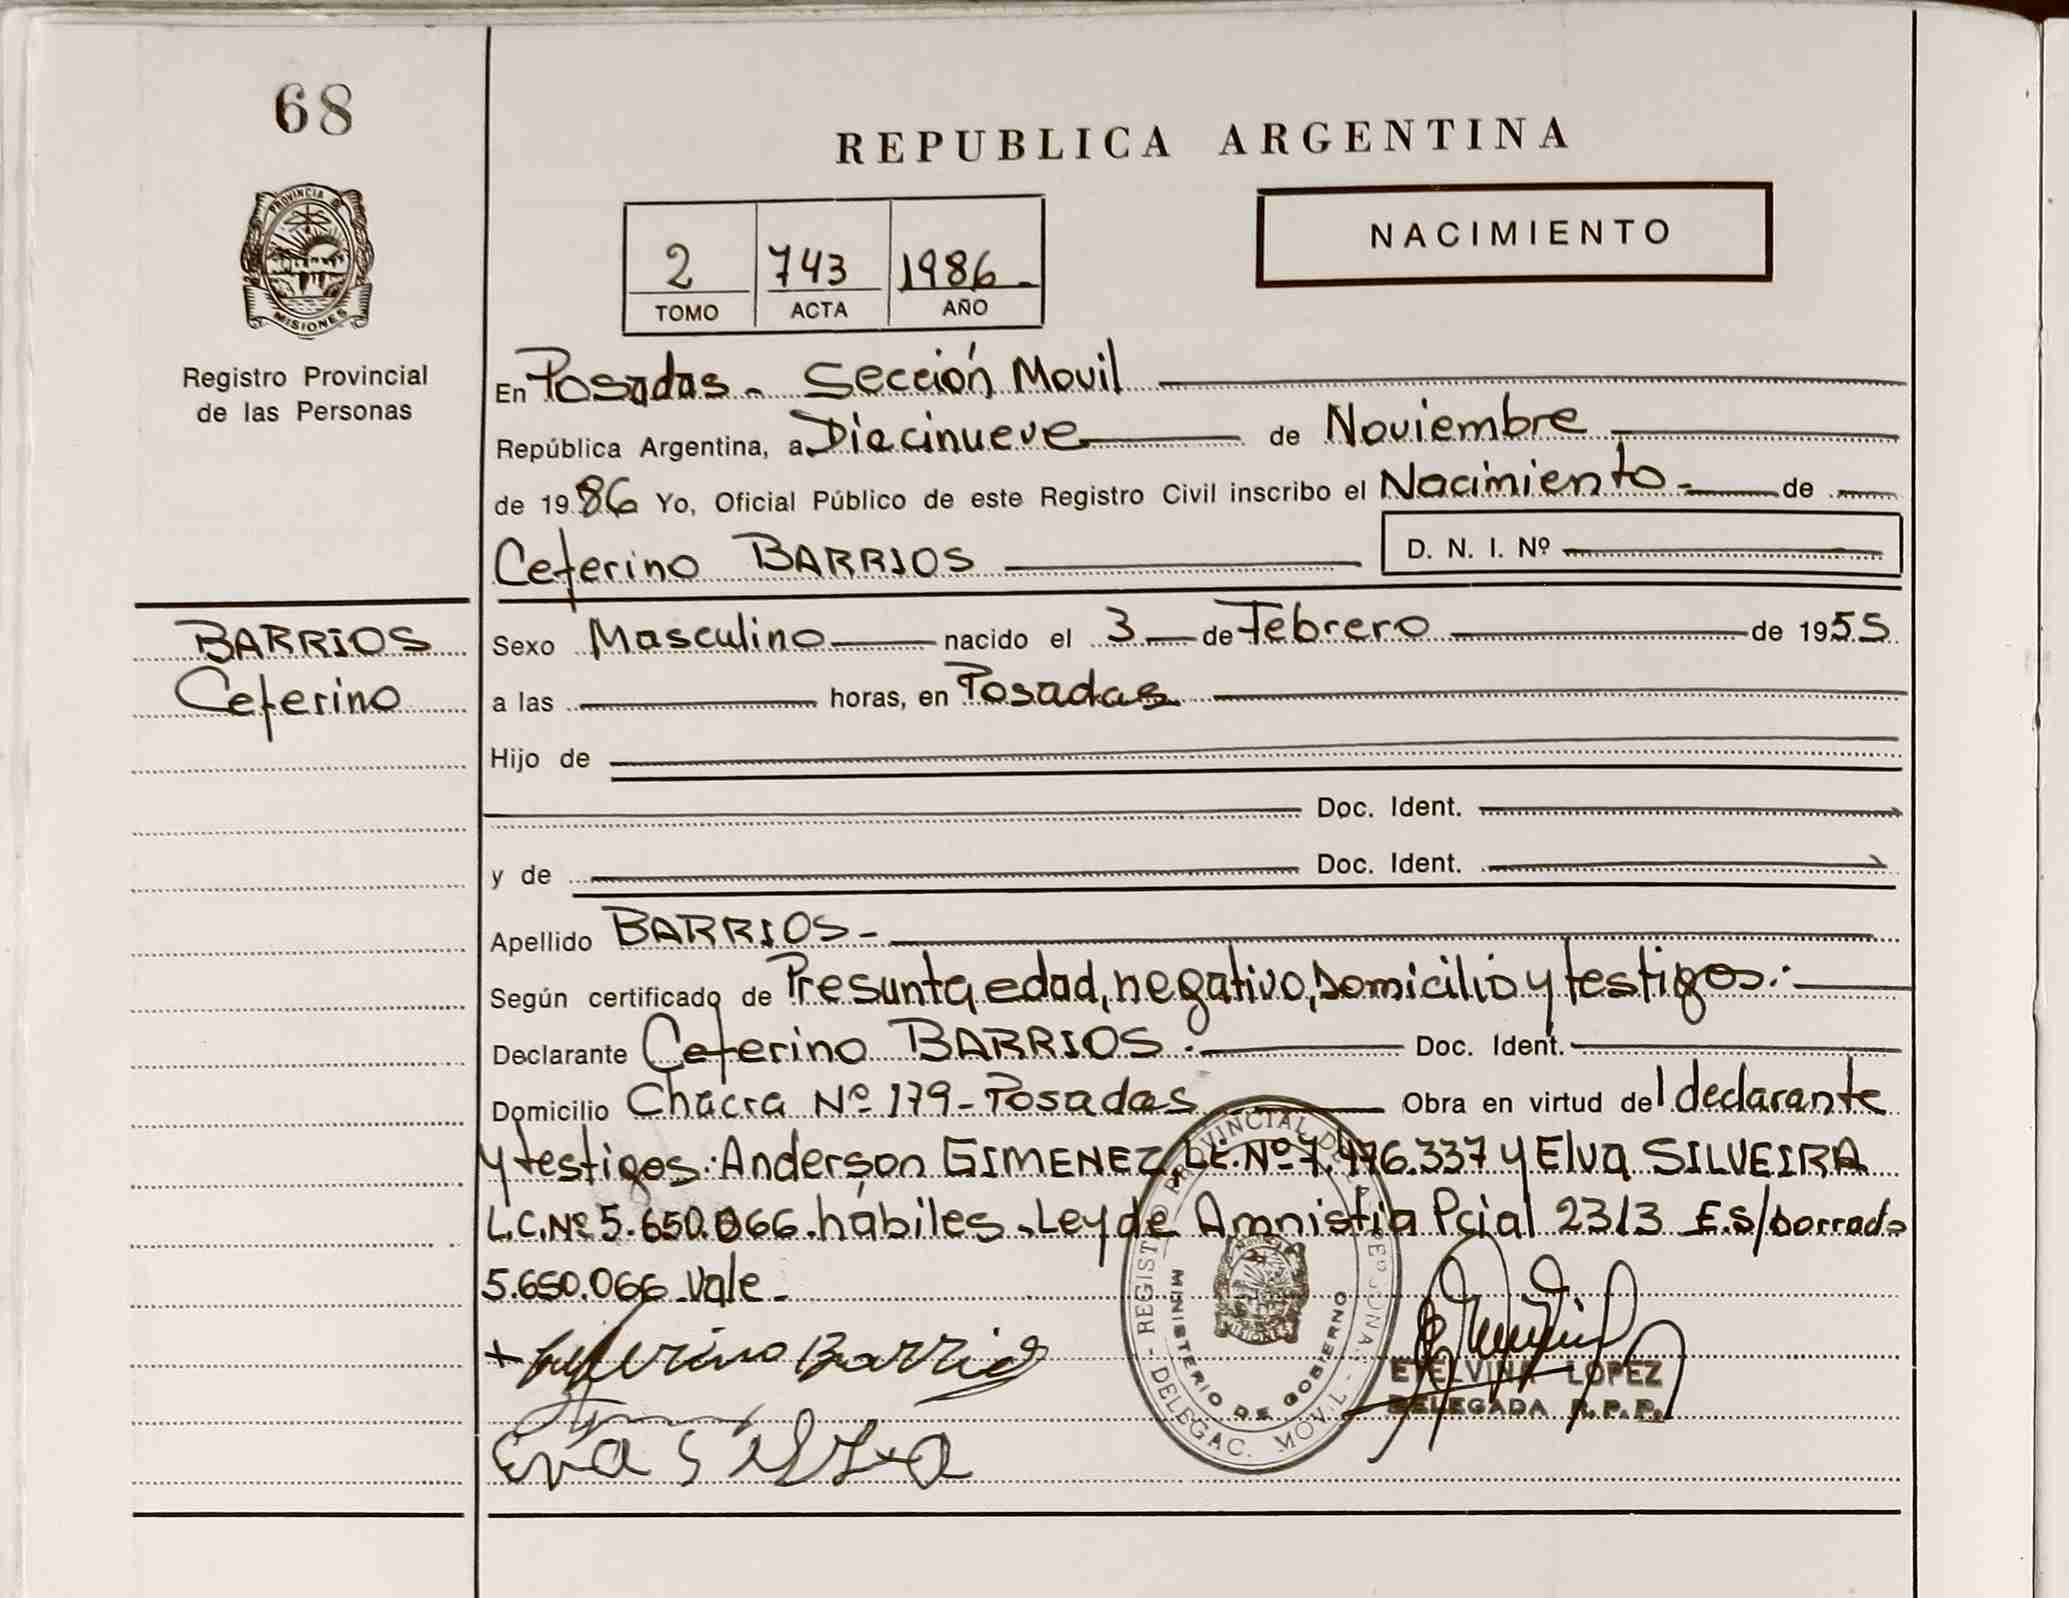 68
PROVINCIA DE
MISIONES
Registro Provincial
de las Personas
BARRIOS
Ceferino
REPUBLICA ARGENTINA
2 743 1986
TOMO ACTA AÑO
NACIMIENTO
En Posadas - Sección Movil
República Argentina, a Diecinueve de Noviembre
de 1986 Yo, Oficial Público de este Registro Civil inscribo el Nacimiento - de
Ceferino BARRIOS D. N. I. Nº
Sexo Masculino nacido el 3 de Febrero de 1955
a las horas, en Posadas
Hijo de
Doc. Ident.
y de Doc. Ident.
Apellido BARRIOS -
Según certificado de Presunta edad, negativo, Domicilio y testigos.-
Declarante Ceferino BARRIOS.- Doc. Ident.
Domicilio Chacra Nº 179 - Posadas Obra en virtud del declarante
y testigos: Anderson GIMENEZ, L.E. Nº 7.476.337 y Elva SILVEIRA
L.C. Nº 5.650.066. hábiles. Ley de Amnistia Pcial 2313 E.s/borrado
5.650.066 Vale -
Ceferino Barrios
REGISTRO PROVINCIAL DE LAS PERSONAS - DELEGAC. MOVIL -
MINISTERIO DE GOBIERNO
MISIONES
ETELVINA LOPEZ
DELEGADA R.P.P.